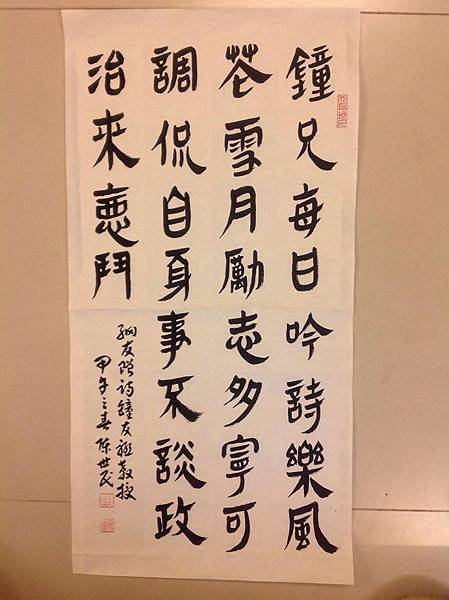 鐘兄每日吟詩樂風
花雪月勵志多寧可
調侃自身事不談政
治來惡鬥
網友贈詩鐘友祉教授
甲午之春陳世民